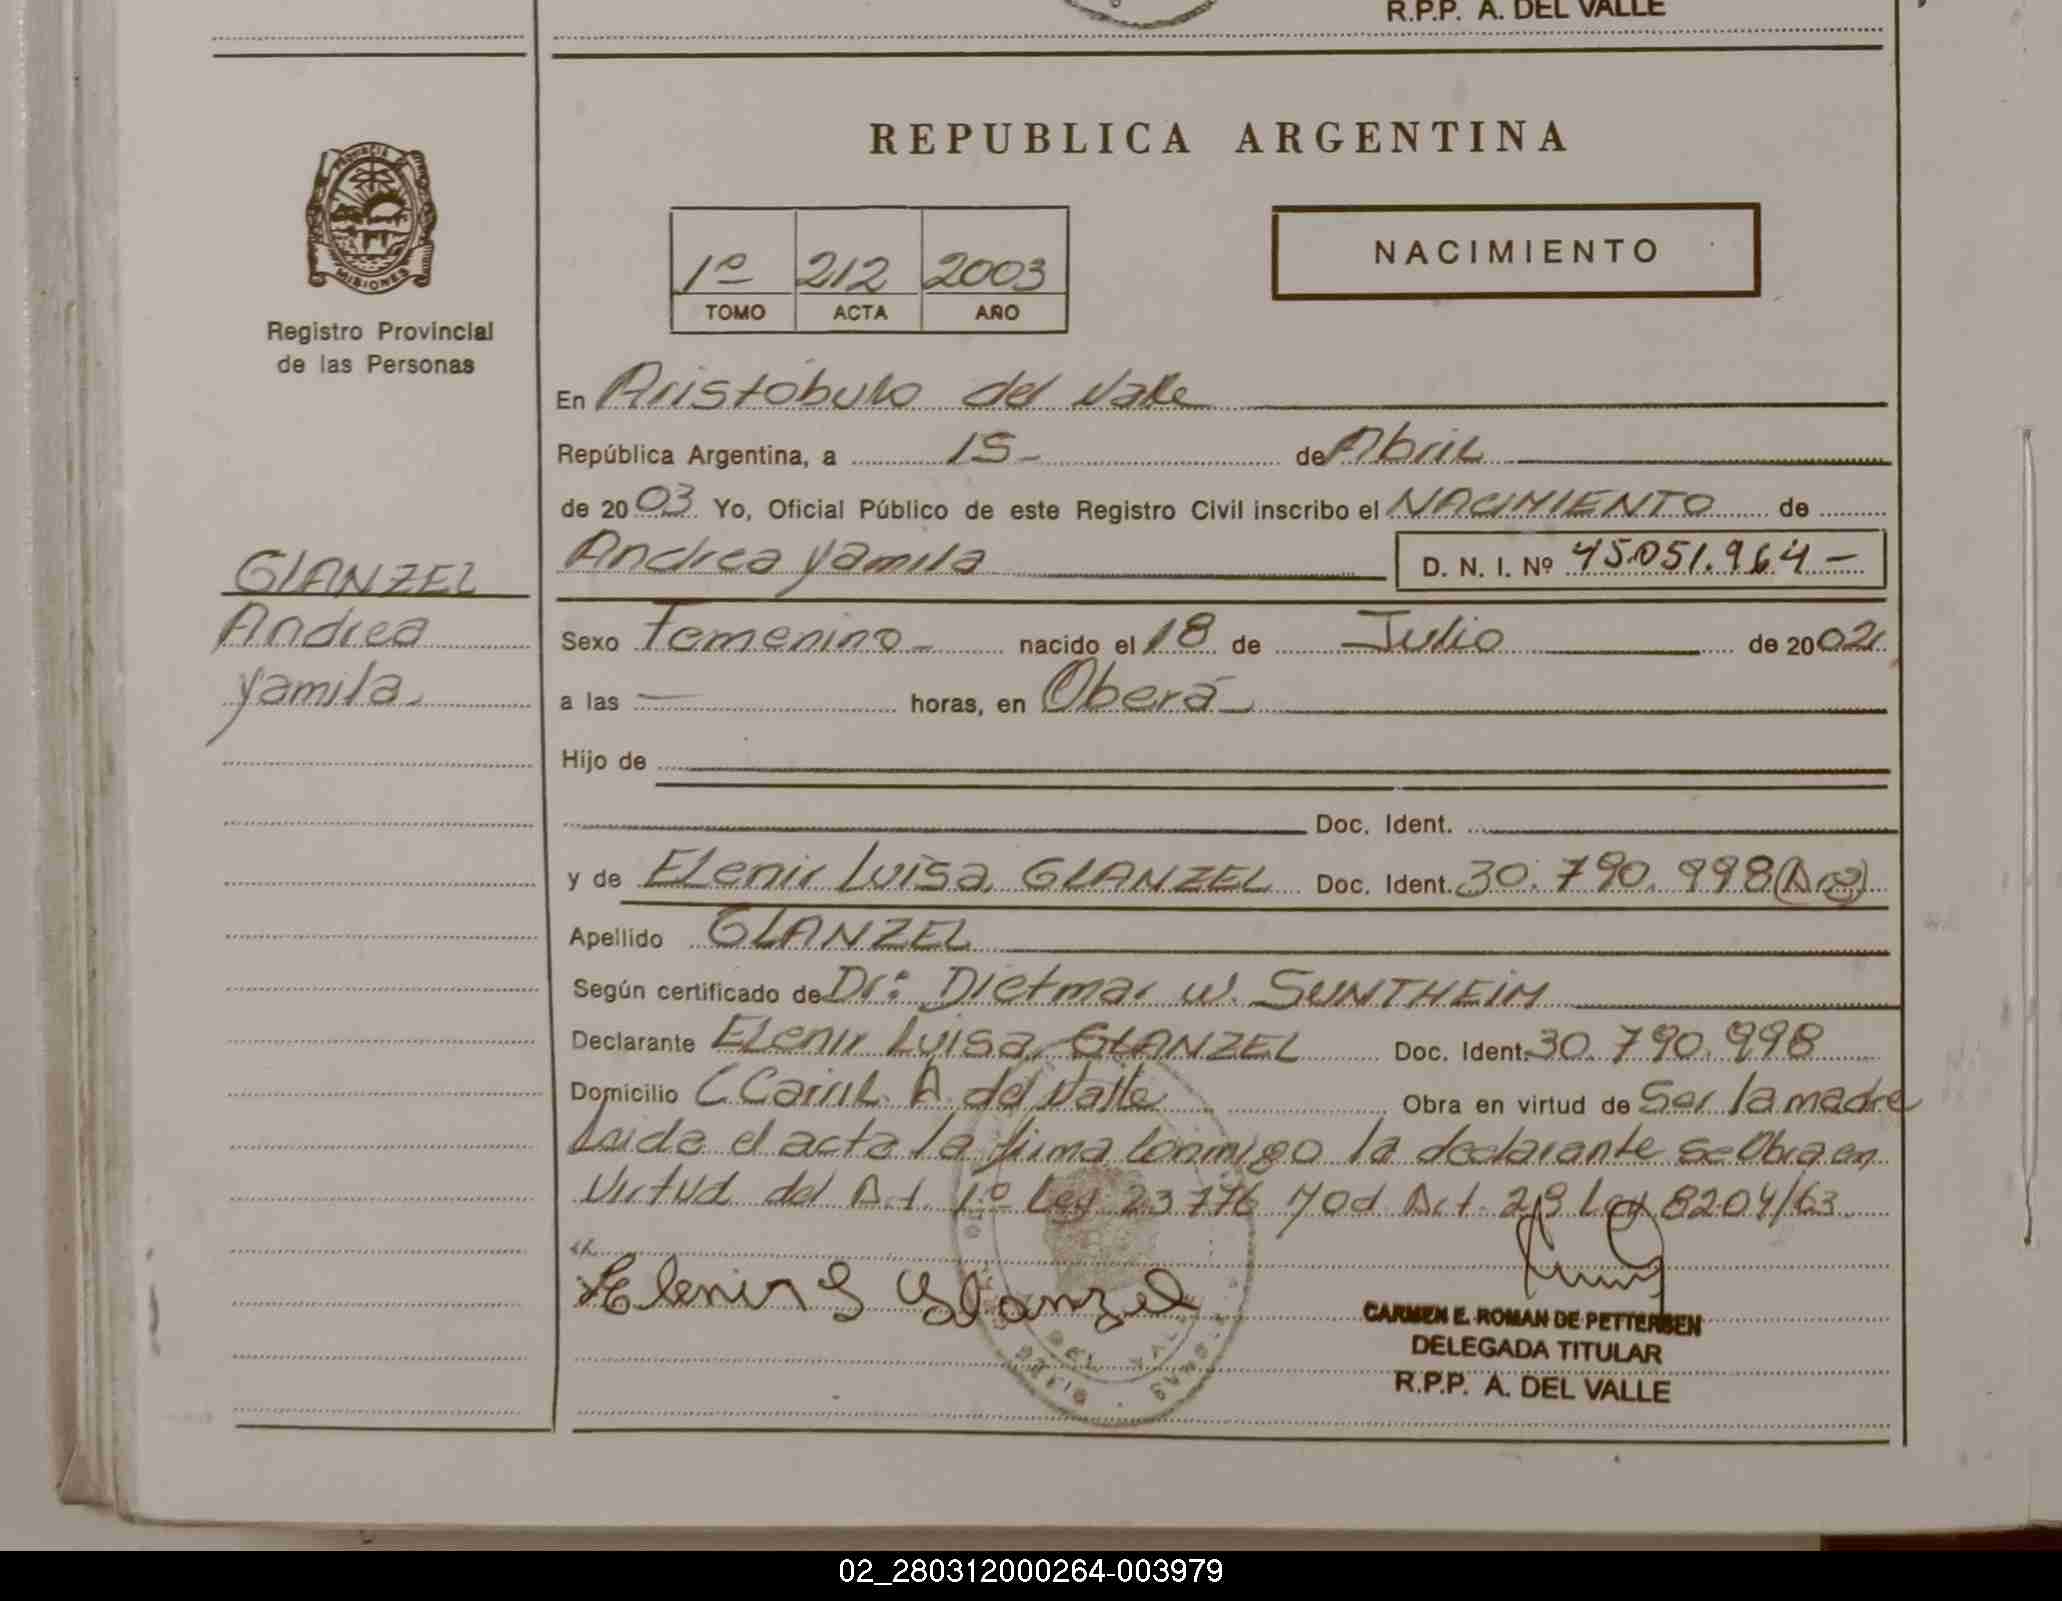 R.P.P. A. DEL VALLE
REPUBLICA ARGENTINA
PROVINCIA
MISIONES
Registro Provincial
de las Personas
1º 212 2003
TOMO ACTA AÑO
NACIMIENTO
En Aristóbulo del Valle
República Argentina, a 15- de Abril
de 2003 Yo, Oficial Público de este Registro Civil inscribo el NACIMIENTO de
GLANZEL
Andrea
Yamila.
Andrea Yamila D. N. I. Nº 45.051.964 -
Sexo Femenino - nacido el 18 de Julio de 2002
a las — horas, en Oberá -
Hijo de
Doc. Ident.
y de ELenir Luisa GLANZEL Doc. Ident. 30.790.998 (Arg)
Apellido GLANZEL
Según certificado de Dr: Dietmar W. SUNTHEIM
Declarante ELenir Luisa GLANZEL Doc. Ident. 30.790.998
Domicilio C. Cainh. A. del Valle Obra en virtud de Ser la madre
Leida el acta la firma conmigo la declarante se Obra en
Virtud del Art. 1º Ley 23776 Mod Art. 29 Ley 8204/63
Elenir L Glanzel
CARMEN E. ROMAN DE PETTERSEN
DELEGADA TITULAR
R.P.P. A. DEL VALLE
02_280312000264-003979